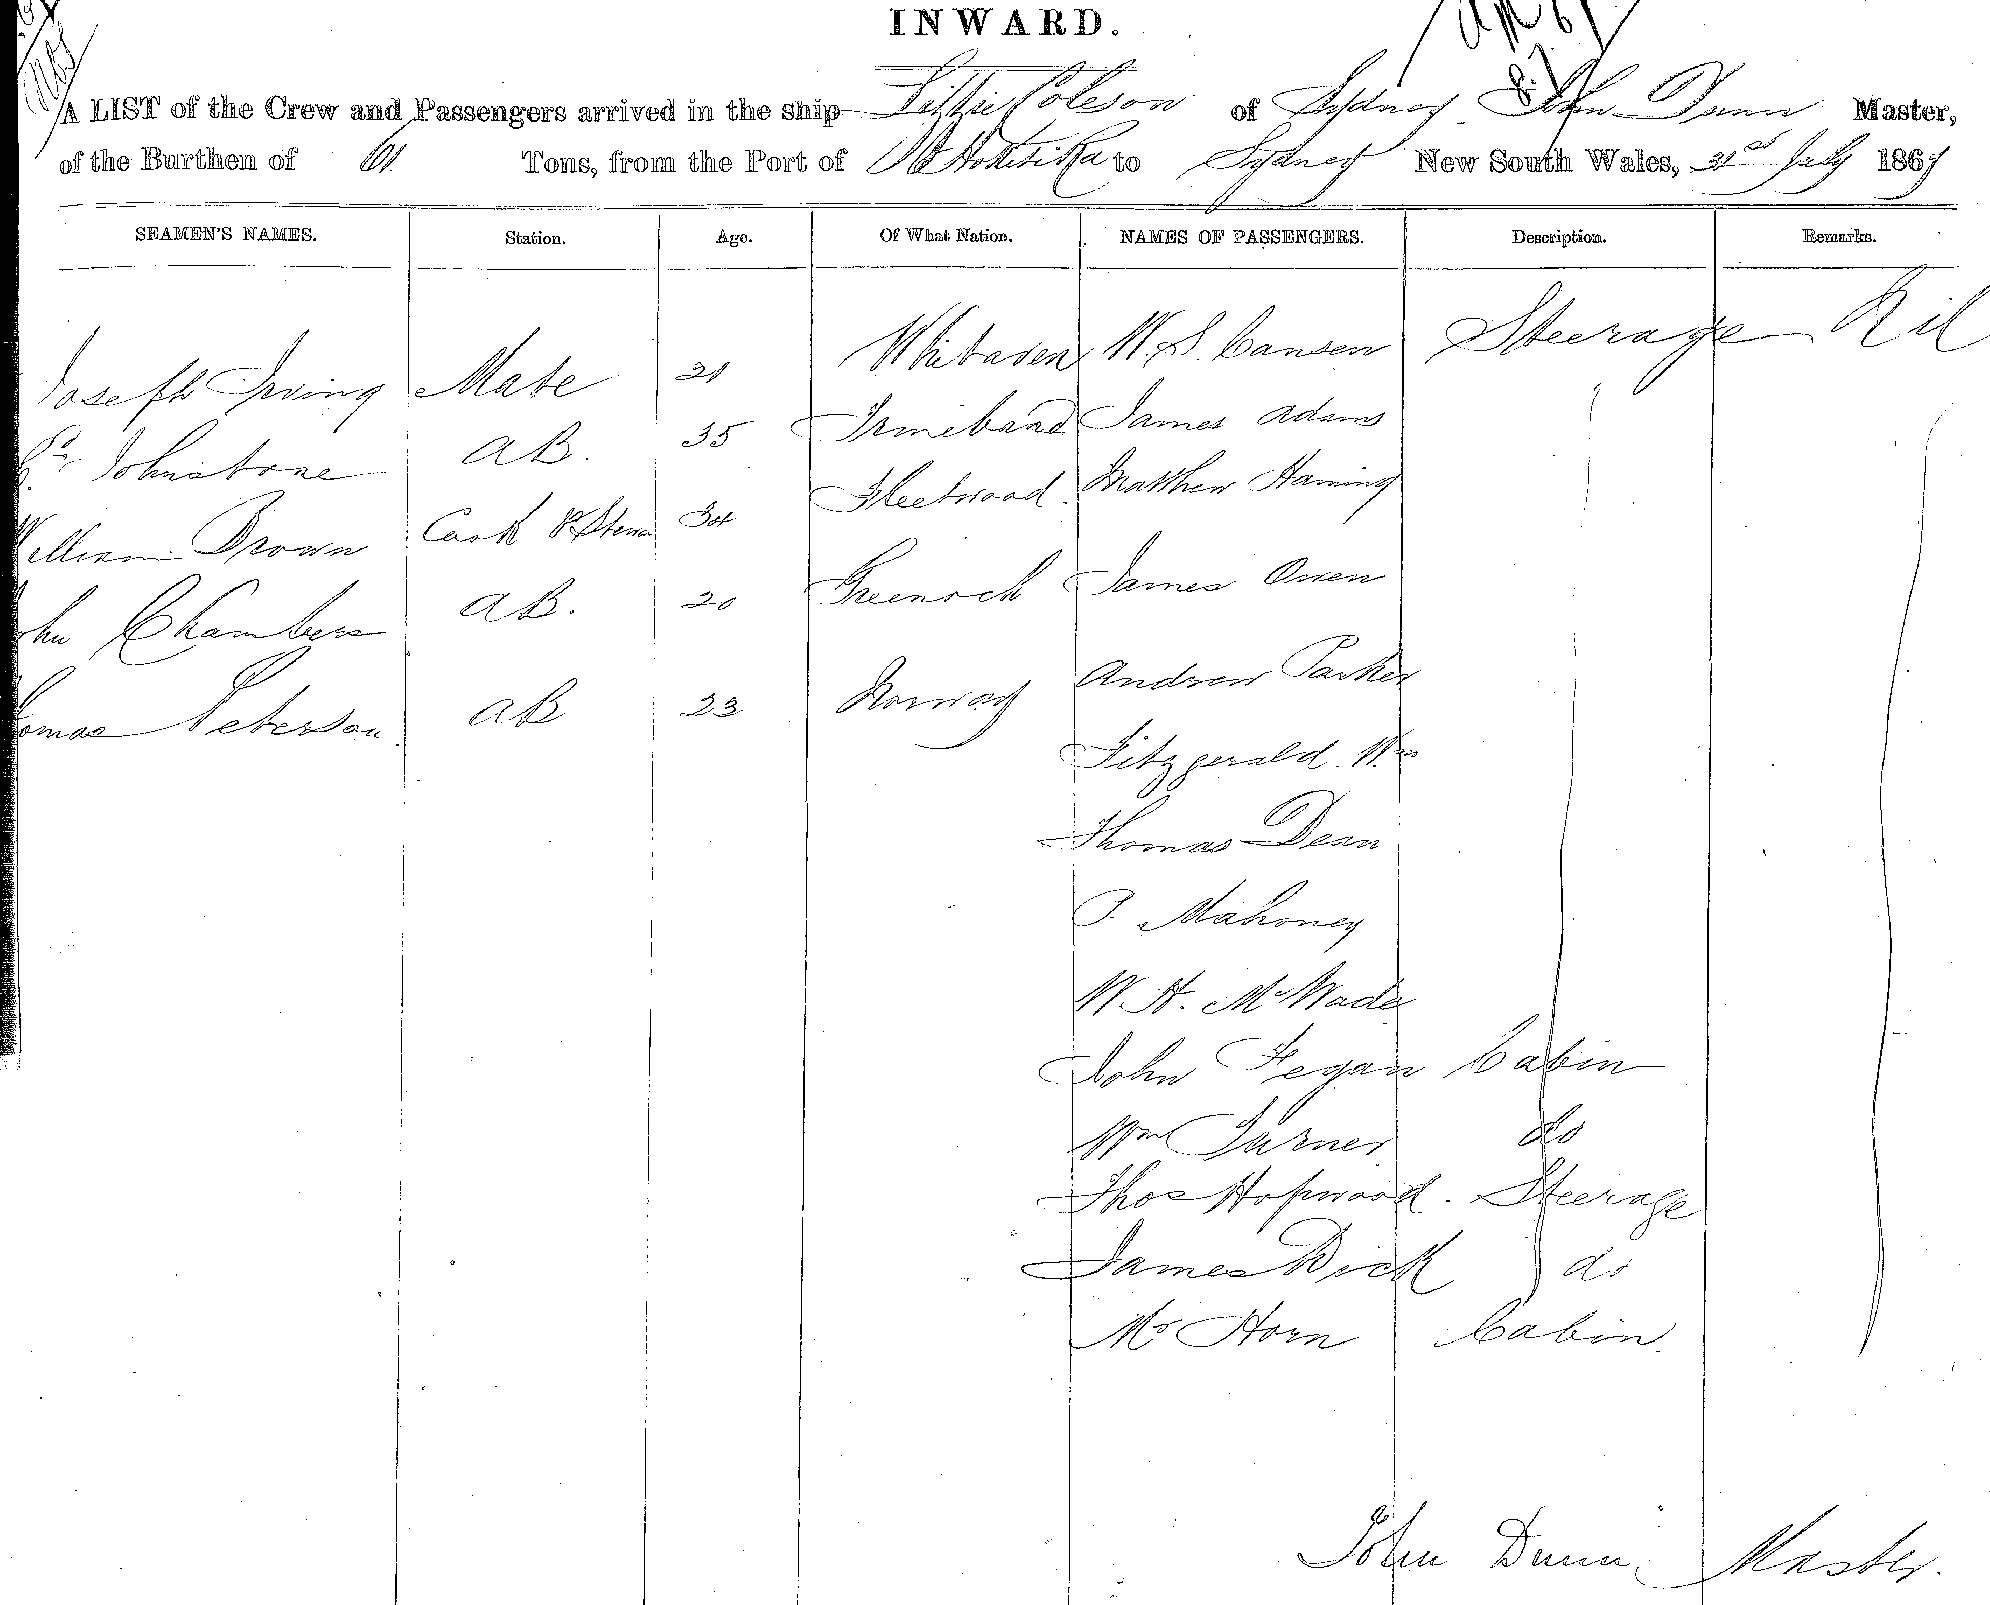 INWARD.
A LIST of the Crew and Passengers arrived in the ship Lizzie Coleson of Sydney John Dunn Master,
of the Burthen of 61 Tons, from the Port of Hokitika to Sydney New South Wales, 31st July 1867
SEAMEN'S NAMES. Station. Age. Of What Nation. NAMES OF PASSENGERS. Description. Remarks.
Joseph Irving Mate 21 Whitaven W. S. Cansen Steerage Nil
Johnstone AB. 35 James Adams
William Brown Cook & Stew 34 Fleetwood Matthew Haming
John Chambers AB. 20 Greenock James Owen
Thomas Peterson AB 23 Norway Andrew Parker
Fitzgerald Wm
Thomas Dean
P. Mahoney
W. H. McWade
John Fegan Cabin
Wm Turner do
Thos Hopwood. Steerage
James Dick do
Mr Horn Cabin.
John Dunn Master.